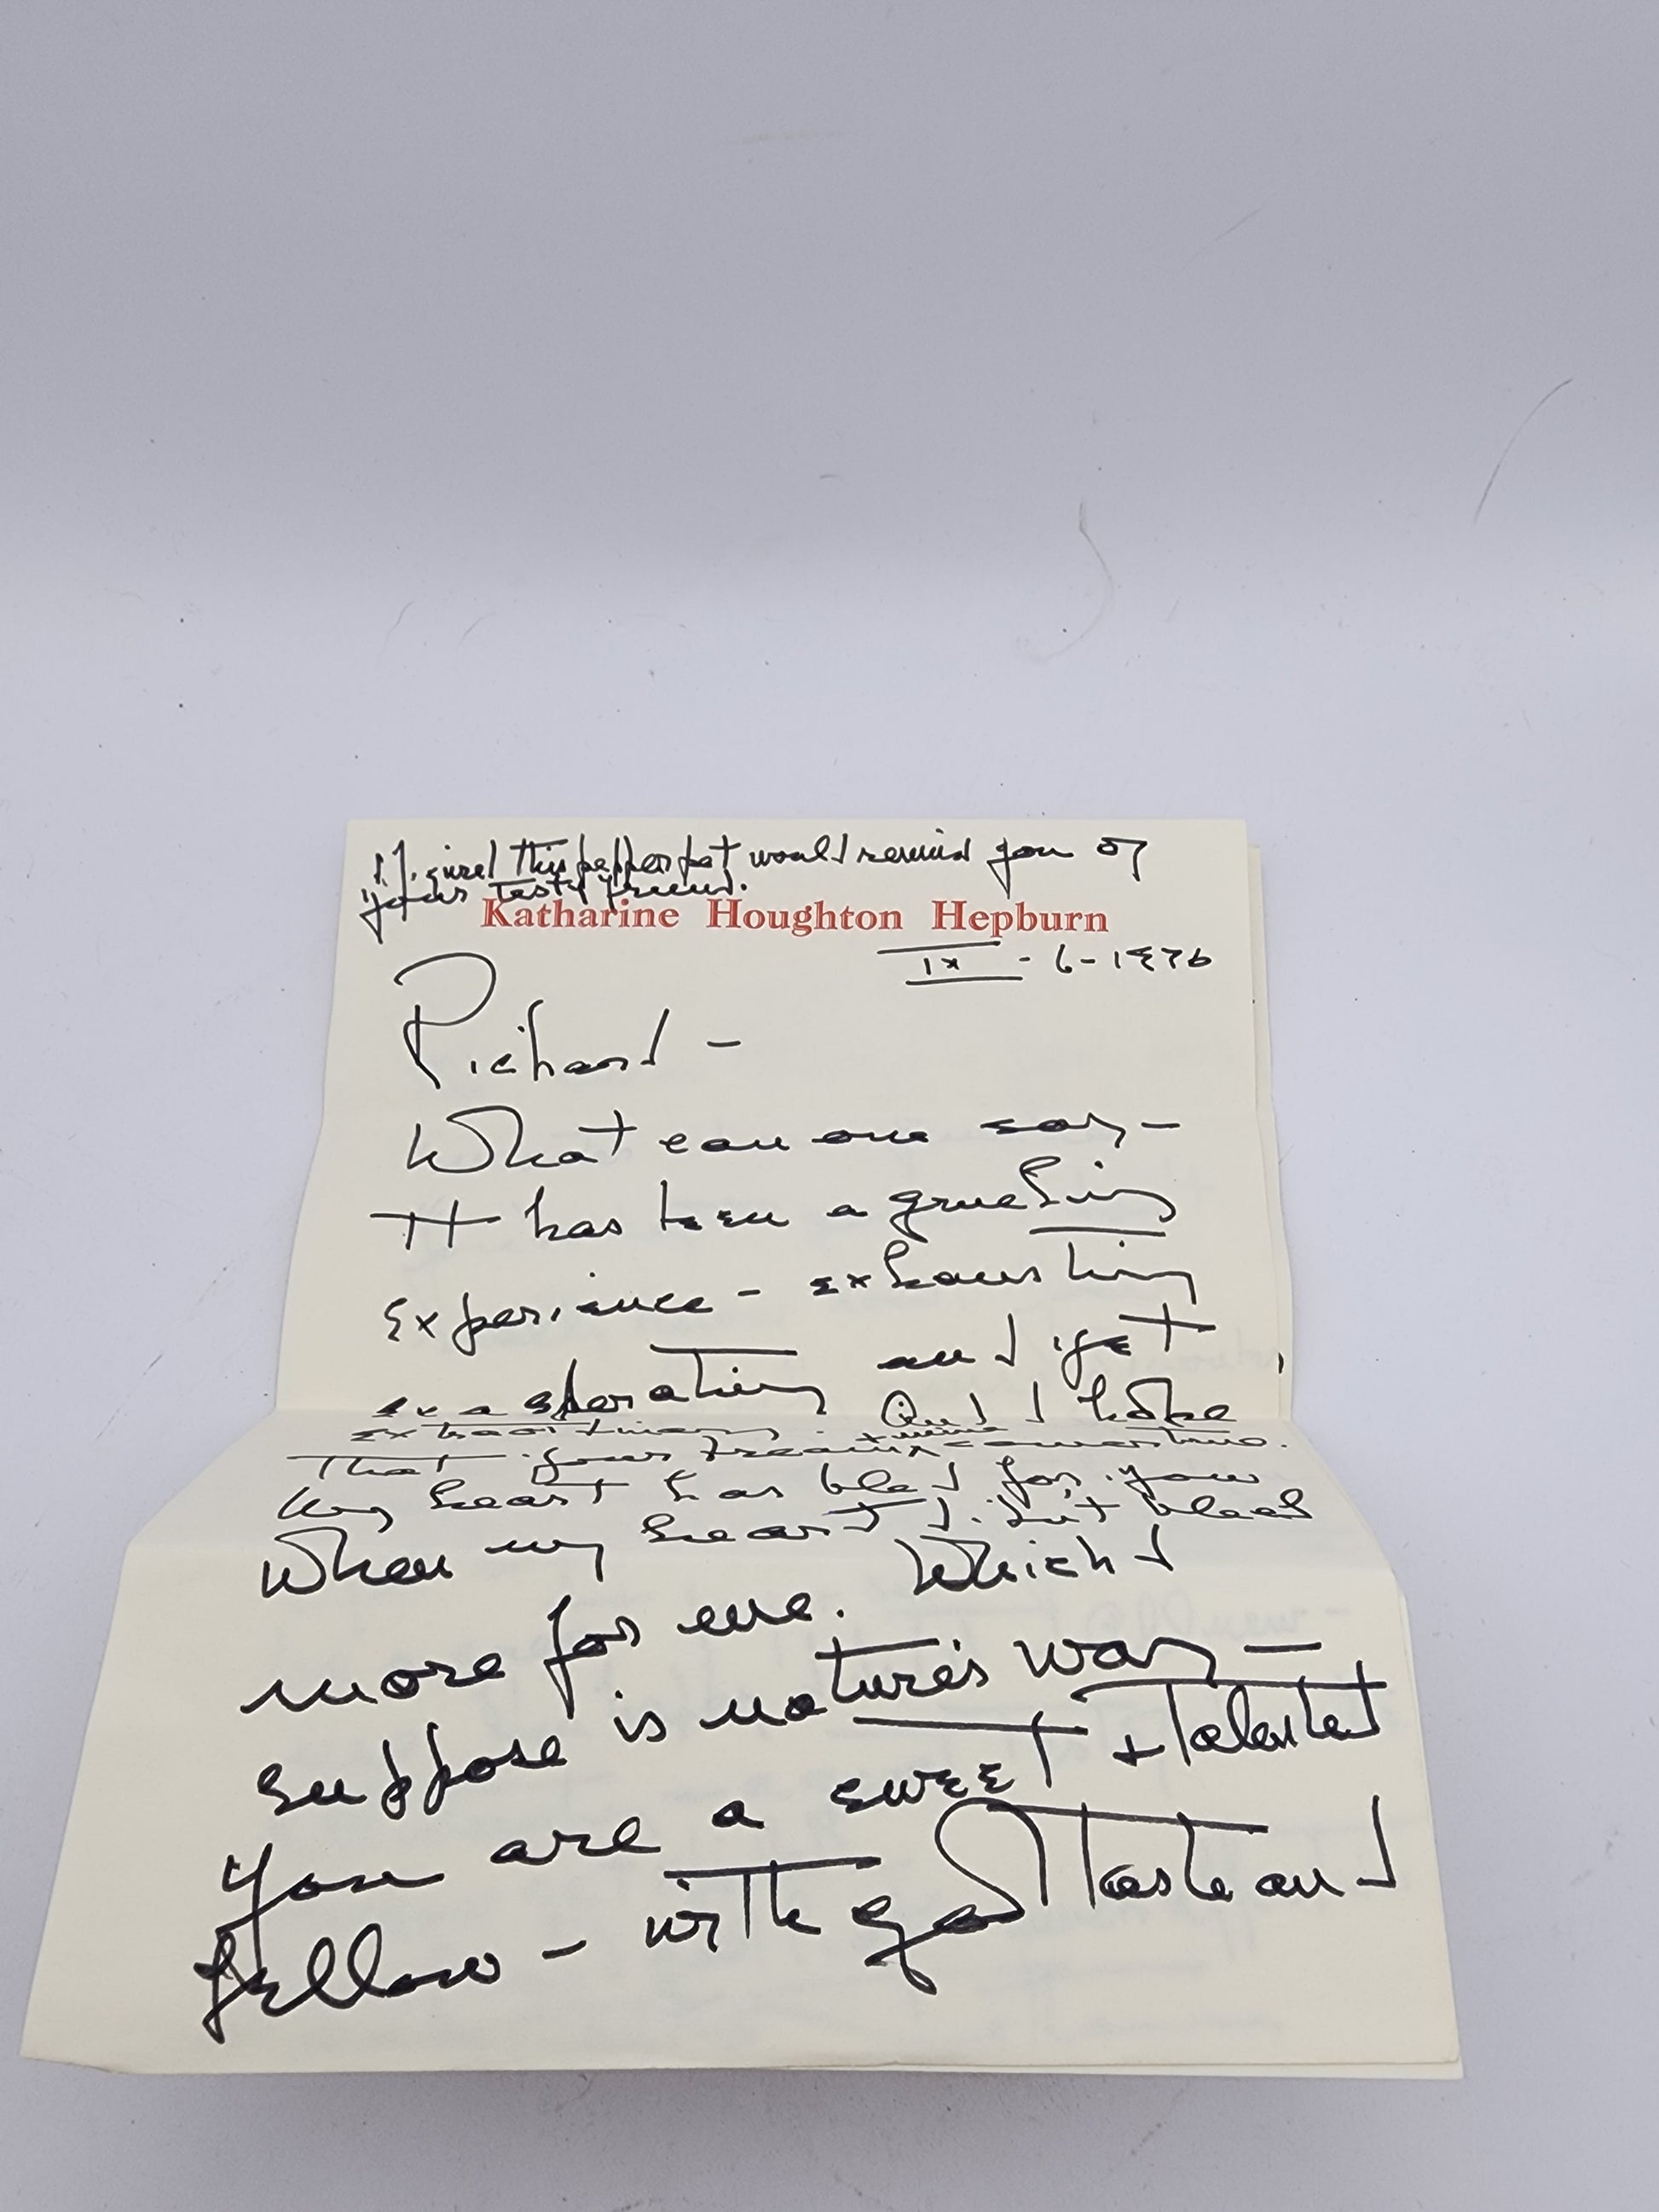 I figured this pepper pot would remind you of
your testy friend.
Katharine Houghton Hepburn
IX - 6 - 1976
Richard -
What can one say -
It has been a grueling
experience - exhausting
exasperating and yet
extraordinary. And I hope
that your + mine comes true.
My heart has bled for you
When my heart didn't bleed
more for me. Which I
suppose is nature's way -
You are a sweet + talented
fellow - with good taste and